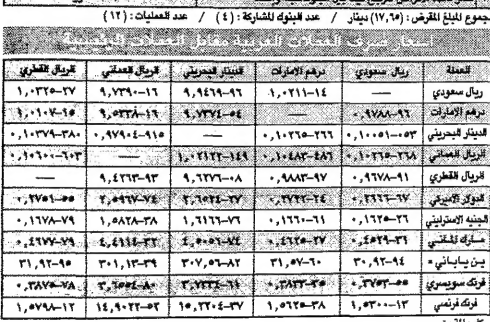 جموع المبلغ المقرض : (١٧,٦٥) دينار / عدد البنوك المشاركة : (٤) / عدد العمليات : (١٢)
اسعار صرف العملات العربية مقابل العملات الرئيسية
العملة ريال سعودي درهم الامارات الدينار البحريني الريال العماني الريال القطري
ريال سعودي — ١,٠٢١١-١٤ ٩,٩٤٦٩-٩٦ ٩,٧٣٩٠-١٦ ١,٠٣٢٥-٢٧
درهم الامارات ٠,٩٧٨٨-٩٦ — ٩,٧٣٧٤-٥٤ ٩,٥٣٣٨-١٦ ١,٠١٠٧-١٥
الدينار البحريني ٠,١٠٠٥١-٠٥٣ ٠,١٠٢٦٥-٢٦٦ — ٠,٩٧٩٠٤-٩١٥ ٠,١٠٣٧٩-٣٨٠
الريال العماني ٠,١٠٢٦٥-٢٦٨ ٠,١٠٤٨٣-٤٨٦ ١,٠٢١٢٢-١٤٩ — ٠,١٠٦٠٠-٦٠٣
الريال القطري ٠,٩٦٧٨-٩١ ٠,٩٨٨٣-٩٧ ٩,٦٢٧٦-٠٨ ٩,٤٢٦٣-٩٣ —
الدولار الاميركي ٠,٢٦٦٦-٦٧ ٠,٢٧٢٢-٢٤ ٢,٦٥٢٤-٢٧ ٢,٥٩٦٧-٧٤ ٠,٢٧٥١-٥٥
الجنيه الاسترليني ٠,١٦٢٥-٢٦ ٠,١٦٦٠-٦١ ١,٦١٦٦-٧٦ ١,٥٨٢٨-٣٨ ٠,١٦٧٨-٧٩
مارك ٠,٤٥٢٩-٣١ ٠,٤٦٢٥-٢٧ ٤,٥٠٥٦-٧٤ ٤,٤١١٤-٣٢ ٠,٤٦٧٧-٧٩
ين ياباني* ٣٠,٩٢-٩٤ ٣١,٥٧-٦٠ ٣٠٧,٥٦-٨٢ ٣٠١,١٣-٣٩ ٣١,٩٢-٩٥
فرنك سويسري ٠,٣٧٥٣-٥٥ ٣,٧٣٣٤-٦١ ٣,٦٥٥٤-٨٠ ٠,٣٨٧٥-٧٨
فرنك فرنسي ١,٥٣٠٠-١٣ ١,٥٦٢٥-٣٨ ١٥,٢٢٠٤-٣٧ ١٤,٩٠٢٢-٥٢ ١,٥٧٩٨-١٢